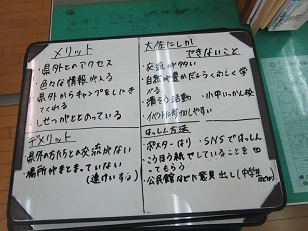 メリット
・県外とのアクセス
・色々な情報が入る
・県外からキャンプをしにきてくれる
・しせつがととのっている
大佐にしかできないこと
・交流が多い
・自然が豊かだからくわしく学べる
・湯そり活動 小中いっかん校
・イベントに参加しやすい
デメリット
・県外の方たちとの交流がない
・場所がまとまっていない
(遠すぎる)
はっしん方法
・ポスターはり ・SNSではっしん
・こうほう紙でしていることを
てもらう
・公民館などに意見出し(中学生